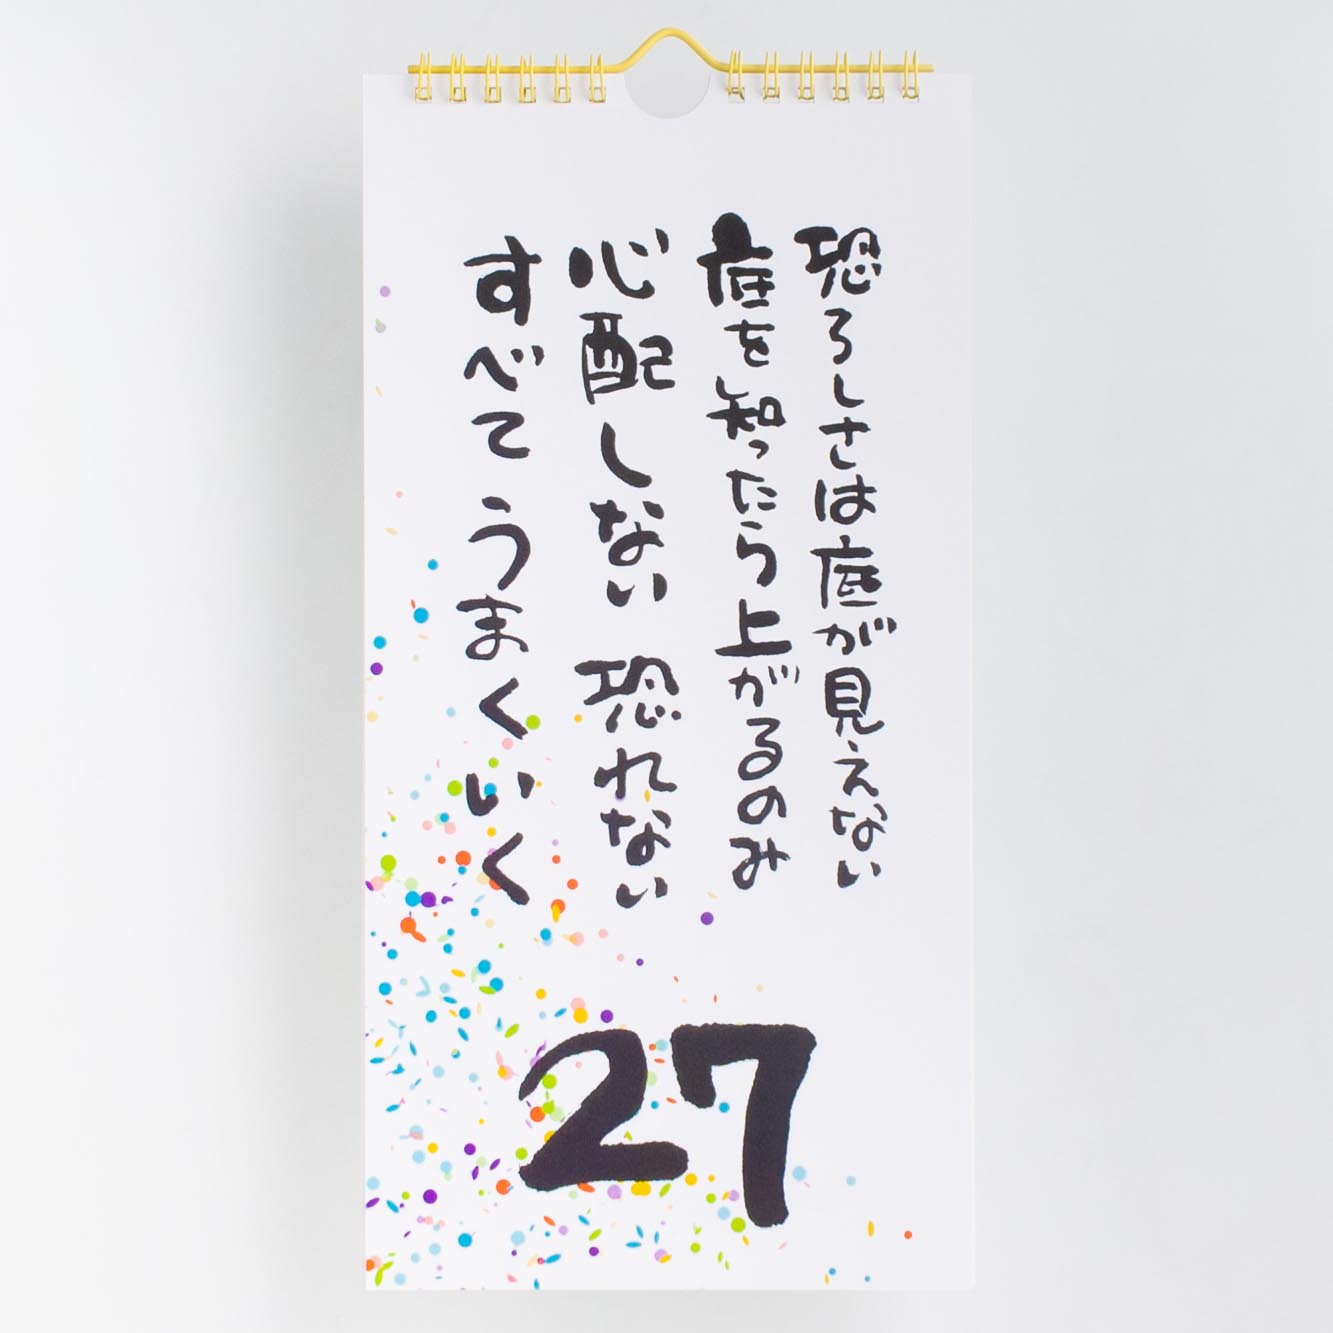 恐ろしさは底が見えない
底を知ったら上がるのみ
心配しない 恐れない
すべて うまくいく
27